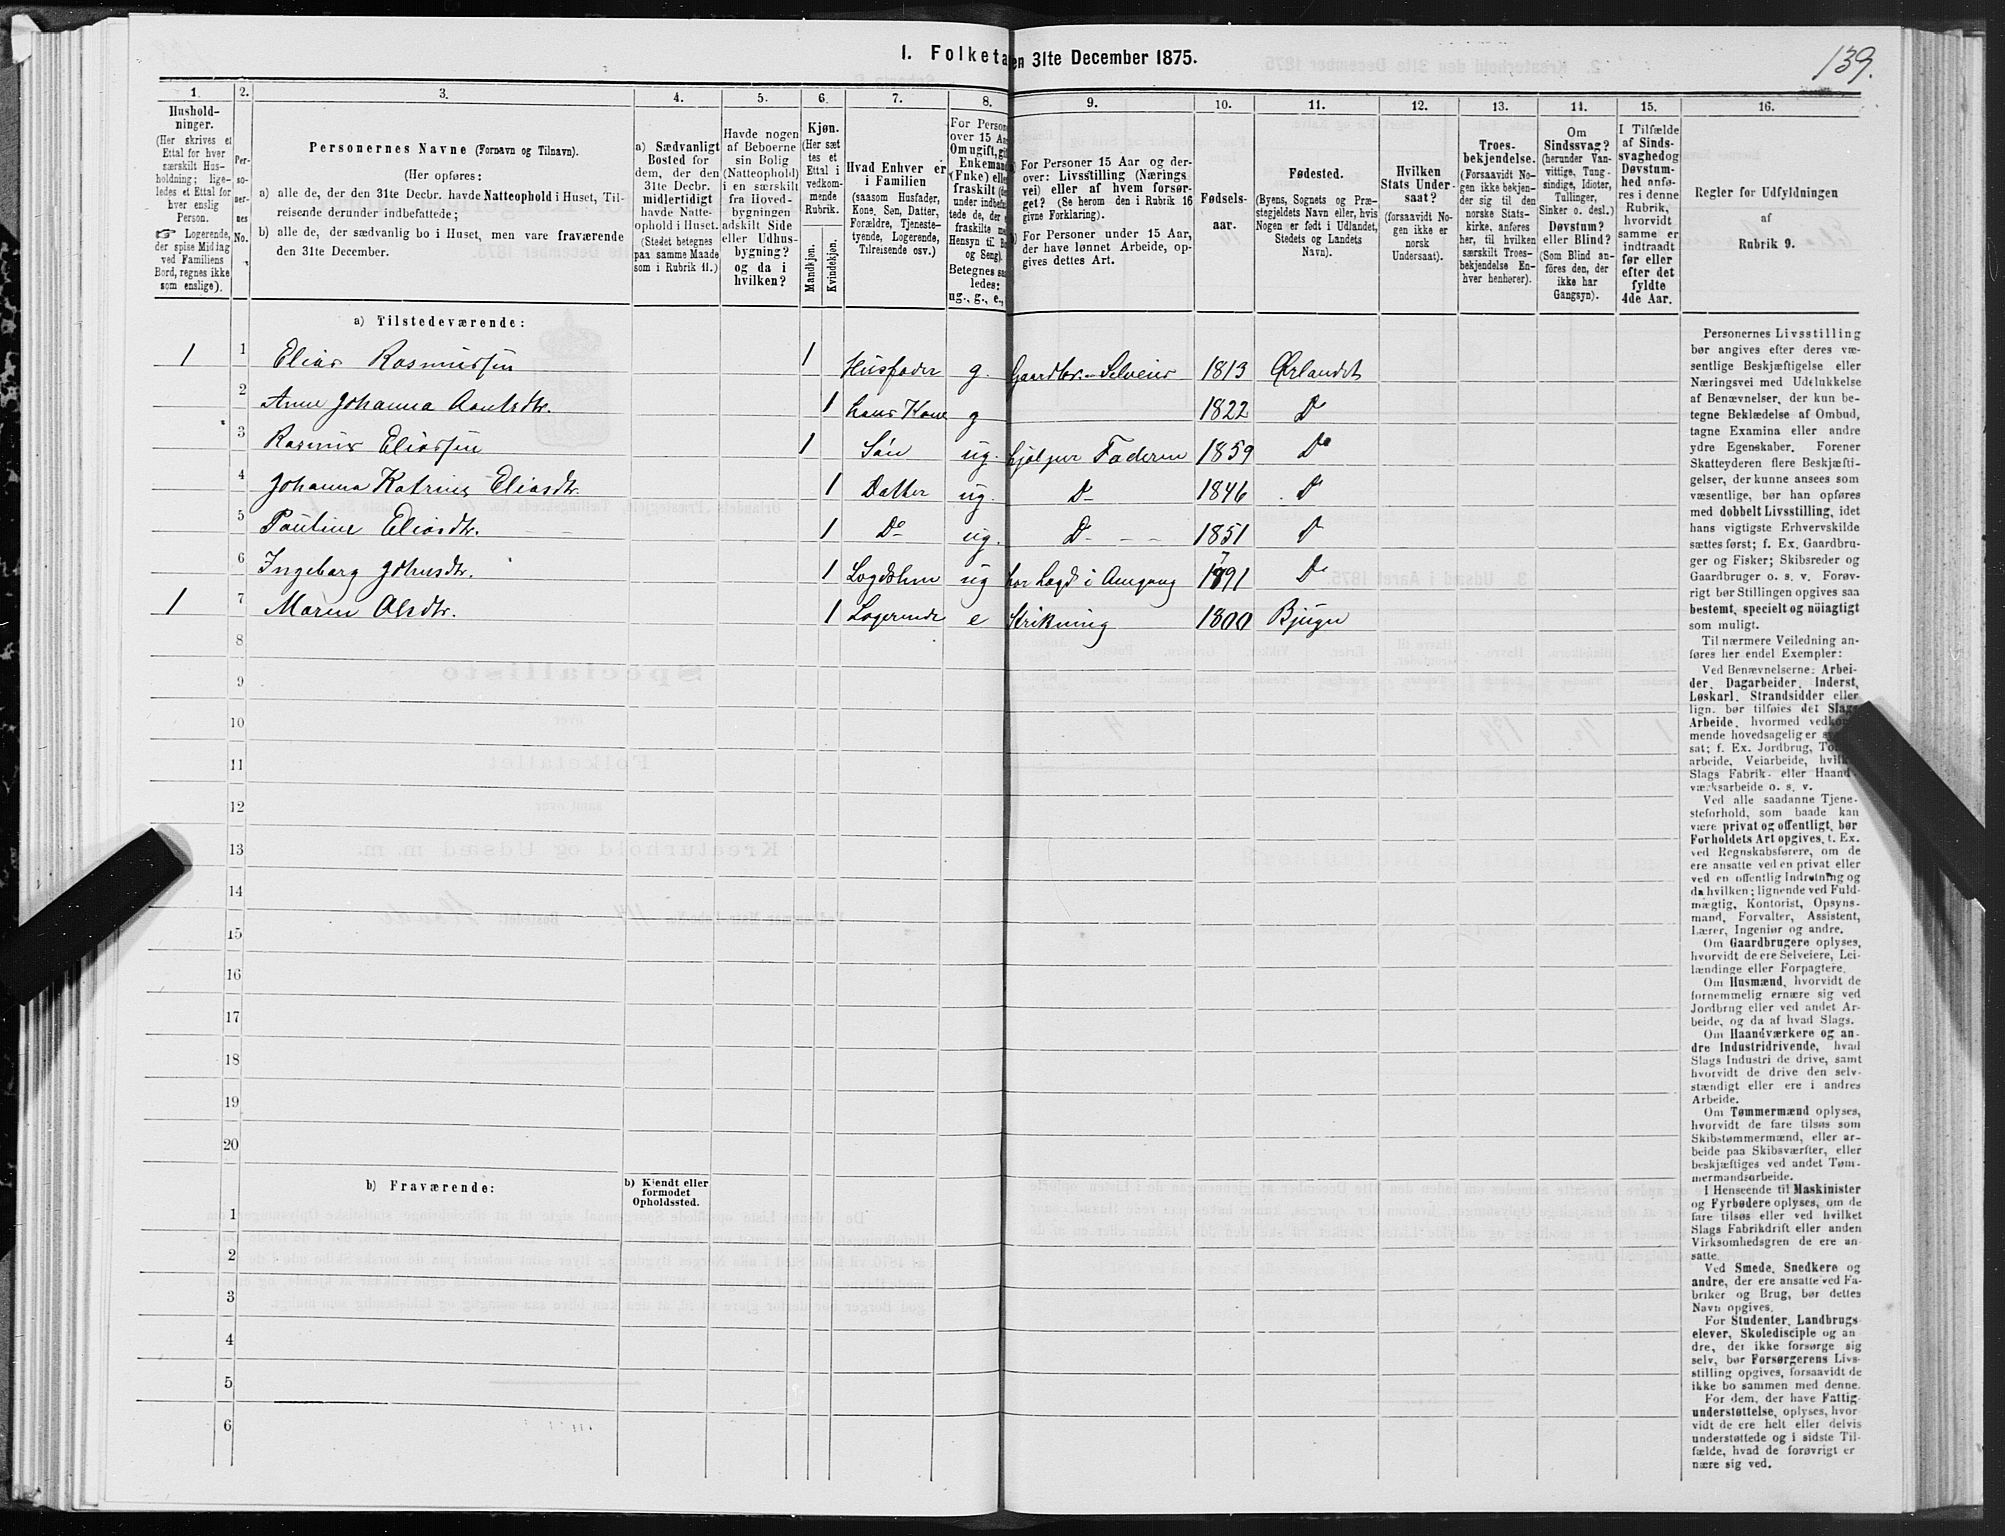 1. Folketa en 31te December 1875.
139.
1. 2. 3. 4. 5. 6. 7. 8. 9. 10. 11. 12. 13. 14. 15. 16.
Hushold-
ninger.
(Her skrives et
Ettal for hver
særskilt Hus-
holdning; lige-
ledes et Ettal for
hver enslig
Person.
☞ Logerende,
der spise Middag
ved Familiens
Bord, regnes ikke
som enslige).
Per-
so-
ner-
nes
No.
Personernes Navne (Fornavn og Tilnavn).
(Her opføres:
a) alle de, der den 31te Decbr. havde Natteophold i Huset, Til-
reisende derunder indbefattede;
b) alle de, der sædvanlig bo i Huset, men vare fraværende
den 31te December.
a) Sædvanligt
Bosted for
dem, der den
31te Decbr.
midlertidigt
havde Natte-
ophold i Huset.
(Stedet betegnes
paa samme Maade
som i Rubrik 11.)
Havde nogen
af Beboerne
sin Bolig
(Natteophold)
i en særskilt
fra Hoved-
bygningen
adskilt Side
eller Udhus-
bygning?
og da i
hvilken?
Kjøn.
(Her sæt
tes et
Ettal i
vedkom-
mende
Rubrik.
Mandkjøn.
Kvindekjøn.
Hvad Enhver er
i Familien
(saasom Husfader,
Kone, Søn, Datter,
Forældre, Tjeneste-
tyende, Logerende,
Tilreisende osv.)
For Person
over 15 Aa
Om ugift, gi
Enkemand
(Enke) elle
fraskilt (de
under indbefa
tede de, der e
fraskilte me
Hensyn til. Bo
og Seng).
Betegnes saa
ledes:
ug., g., e.,
a) For Personer 15 Aar og der-
over: Livsstilling (Nærings
vei) eller af hvem forsør-
get? (Se herom den i Rubrik 16
givne Forklaring.)
b) For Personer under 15 Aar,
der have lønnet Arbeide, op-
gives dettes Art.
Fødsels-
aar.
Fødested.
(Byens, Sognets og Præ-
stegjeldets Navn eller, hvis
Nogen er født i Udlandet,
Stedets og Landets
Navn).
Hvilken
Stats Under-
saat?
(forsaavidt No-
gen ikke er
norsk
Undersaat).
Troes-
bekjendelse.
(Forsaavidt No-
gen ikke bekjen-
der sig til den
norske Stats-
kirke, anføres
her, til hvilken
særskilt Troes-
bekjendelse En-
hver henhører).
Om
Sindssvag?
(herunder Van-
vittige, Tung-
sindige, Idioter,
Tullinger,
Sinker o. desl.)
Døvstum?
eller Blind?
(Som Blind an-
føres den, der
ikke har
Gangsyn).
I Tilfælde
af Sinds-
svaghed og
Døvstum-
hed anfø-
res i denne
Rubrik,
hvorvidt
samme er
indtraadt
før eller
efter det
fyldte
4de Aar.
Regler for Udfyldningen
af
Rubrik 9.
a) Tilstedeværende:
1 1 Elias Rasmussen 1 Husfader g. Gaardbr. Selveier 1813 Ørlandet
2 Anne Johanna 1 hans Kone g 1822 D
3 Rasmus Eliassen 1 Søn ug. hjelper Faderen 1859 Do
4 Johanna Katrine Eliasdtr. 1 Datter ug. D 1846 D
5 Pauline Eliasdtr. 1 Do ug. D 1851 D
6 Ingeborg Johnsdtr. 1 ug har Lægd i Omgang 1791 Do
1 7 Maren Olsdtr. 1 Logerende e Strikning 1800 Bjugn
8
9
10
11
12
13
14
15
16
17
18
19
20
b) Fraværende:
b) Kjendt eller
formodet
Opholdssted.
1
2
3
4
5
6
Personernes Livsstilling
bør angives efter deres væ-
sentlige Beskjæftigelse eller
Næringsvei med Udelukkelse
af Benævnelser, der kun be-
tegne Beklædelse af Ombud,
tagne Examina eller andre
ydre Egenskaber. Forener
Skatteyderen flere Beskjæfti-
gelser, der kunne ansees som
væsentlige, bør han opføres
med dobbelt Livsstilling, idet
hans vigtigste Erhvervskilde
sættes først; f. Ex. Gaardbru-
ger og Fisker; Skibsreder og
Gaardbruger o. s. v. Forøv-
rigt bør Stillingen opgives saa
bestemt, specielt og nöiagtigt
som muligt.
Til nærmere Veiledning an-
føres her endel Exempler:
Ved Benævnelserne: Arbei-
der, Dagarbeider, Inderst,
Løskarl, Strandsidder eller
lign. bør tilføies det Slags
Arbeide, hvormed vedkom-
mende hovedsagelig er
sat; f. Ex. Jordbrug,
arbeide, Veiarbeide,
Slags Fabrik- eller Haand-
værksarbeide o. s. v.
Ved alle saadanne Tjene-
steforhold, som baade kan
være privat og offentligt, bør
Forholdets Art opgives, t. Ex.
ved Regnskabsførere, om de
ere ansatte ved en privat eller
ved en offentlig Indretning og
da hvilken; lignende ved Fuld-
mægtig, Kontorist, Opsyns-
mand, Forvalter, Assistent,
Lærer, Ingeniør og andre.
Om Gaardbrugere oplyses,
hvorvidt de ere Selveiere, Lei-
lændinge eller Forpagtere.
Om Husmænd, hvorvidt de
fornemmelig ernære sig ved
Jordbrug eller ved andet Ar-
beide, og da af hvad Slags.
Om Haandværkere og an-
dre Industridrivende, hvad
Slags Industri de drive, samt
hvorvidt de drive den selv-
stændigt eller ere i andres
Arbeide.
Om Tømmermænd oplyses,
hvorvidt de fare tilsøs som
Skibstømmermænd, eller ar-
beide paa Skibsværfter, eller
beskjæftiges ved andet Tøm-
mermandsarbeide.
I Henseende til Maskinister
og Fyrbødere oplyses, om de
fare tilsøs eller ved hvilket
Slags Fabrikdrift eller anden
Virksomhedsgren de ere an-
satte.
Ved Smede, Snedkere og
andre, der ere ansatte ved Fa-
briker og Brug, bør dettes
Navn opgives.
For Studenter, Landbrugs-
elever, Skoledisciple og an-
dre, der ikke forsørge sig
selv, bør Forsørgerens Livs-
stilling opgives, forsaavidt de
ikke bo sammen med denne.
For dem, der have Fattig-
understøttelse, oplyses, hvor-
vidt de ere helt eller delvis
understøttede og i sidste Til-
fælde, hvad de forøvrigt er
nære sig ved.